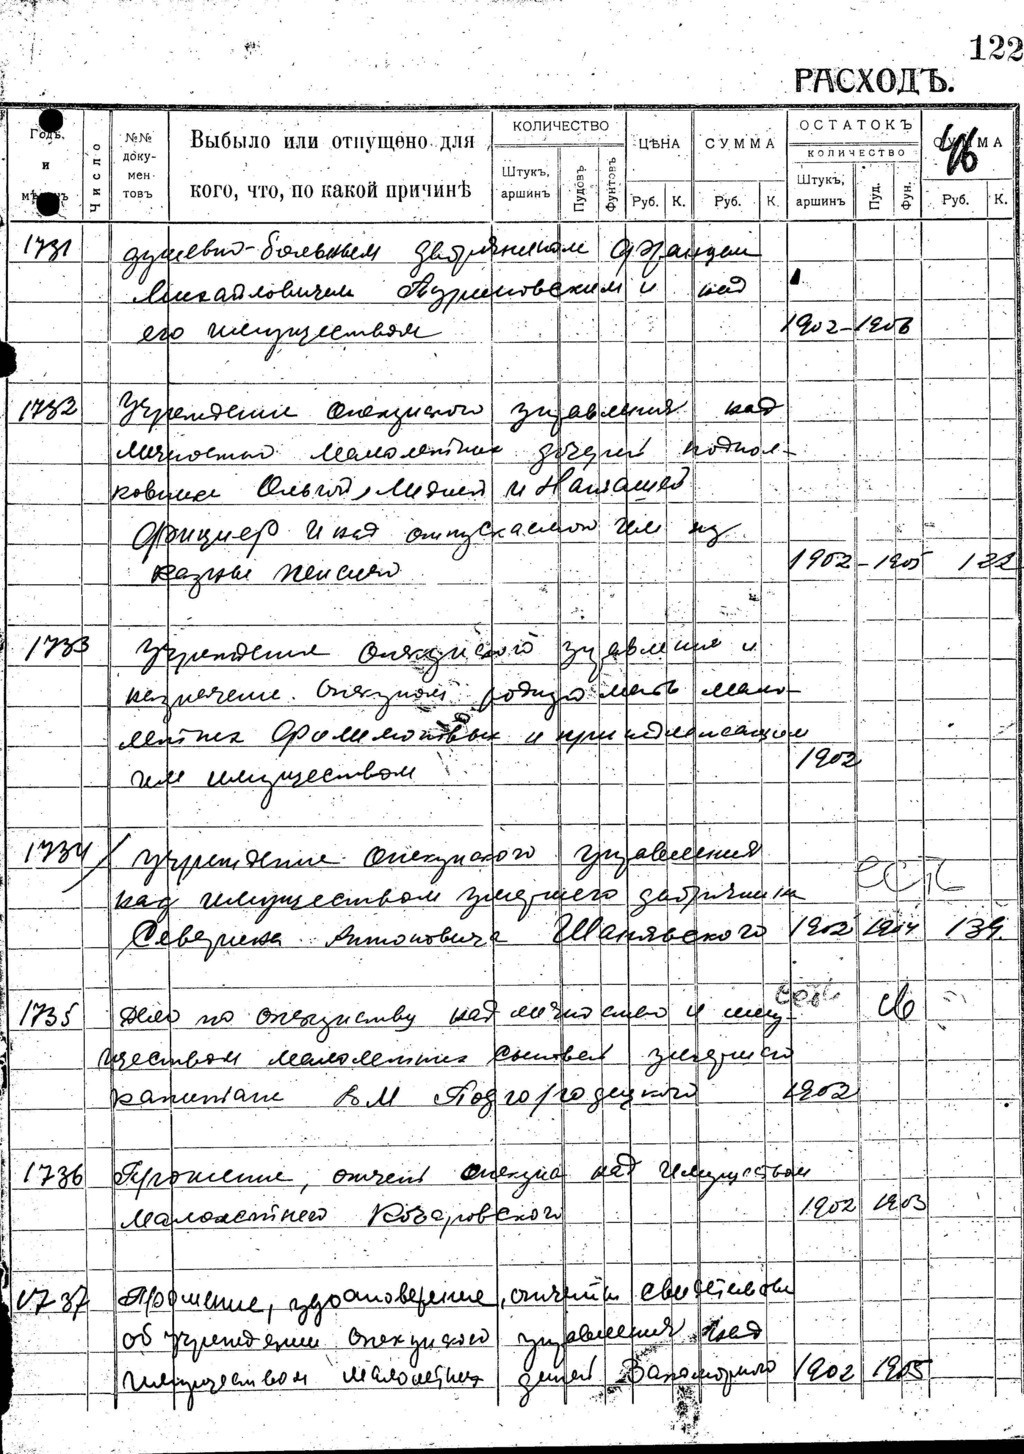 122
РАСХОДЪ.
Годъ и мѣсяцъ
Число
№№ документовъ
Выбыло или отпущено для
кого, что, по какой причинѣ
КОЛИЧЕСТВО
Штукъ, аршинъ
Пудовъ
Фунтовъ
ЦѢНА
Руб. К.
СУММА
Руб. К.
ОСТАТОКЪ
КОЛИЧЕСТВО
Штукъ, аршинъ
Пуд.
Фун.
СУММА
46
Руб. К.
1731 душевно-больным дворянином Францем
Михайловичем и над
его имуществом 1902-1906
1732 Учреждение опекунского управления над
личностью малолетних дочерей подпол-
ковника Ольгой, Лидией и Наташей
Фициер и над отпускаемой им из
казны пенсией 1902-1905 122
1733 Учреждение опекунского управления и
назначение опекуном родную мать мало-
летних Филимоновых и принадлежащим
им имуществом 1902
1734 Учреждение опекунского управления
над имуществом умершего дворянина есть
Северина Антоновича Шанявского 1902 1914 139.
1735 Дело по опекунству над личностью и иму- есть
ществом малолетних сыновей умершего
капитана В М Подгородецкого 1902
1736 Прошение, отчет опекуна над имуществом
малолетнего Козаровского 1902 1903
1737 Прошение, удостоверение, отчеты свидетельства
об учреждении опекунского управления над
имуществом малолетних детей Запоморного 1902 1905